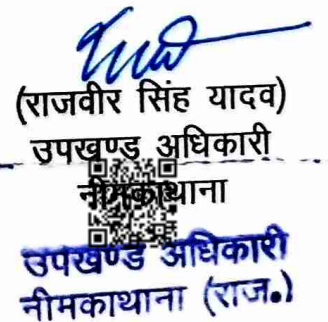 (राजवीर सिंह यादव)
उपखण्ड अधिकारी
नीमकाथाना
उपखण्ड अधिकारी
नीमकाथाना (राज.)